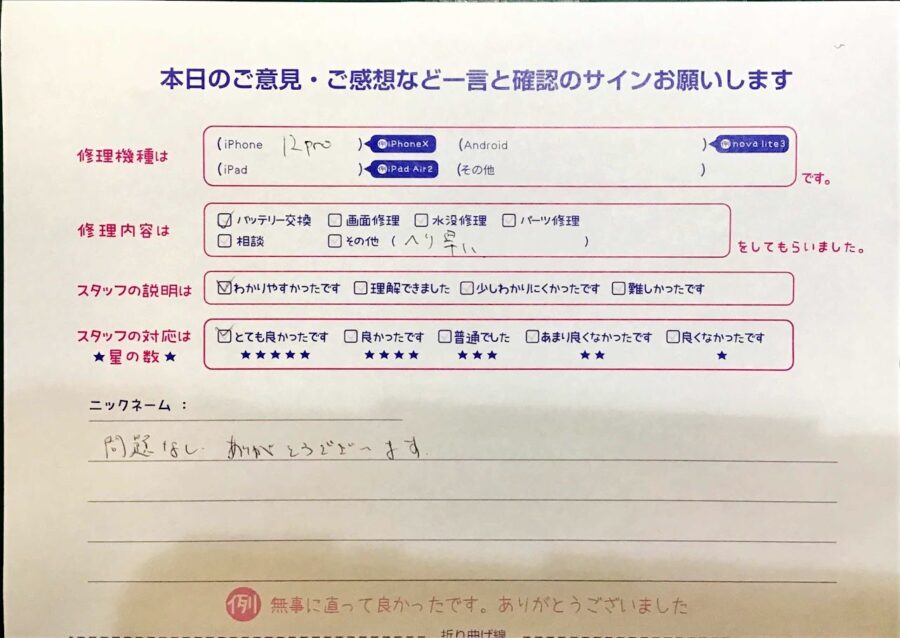 本日のご意見・ご感想など一言と確認のサインお願いします
修理機種は (iPhone 12pro ) 例iPhoneX (Android ) 例nova lite3
(iPad ) 例iPad Air2 (その他 ) です。
修理内容は ☑バッテリー交換 □画面修理 □水没修理 □パーツ修理
□相談 □その他 ( へり早い ) をしてもらいました。
スタッフの説明は ☑わかりやすかったです □理解できました □少しわかりにくかったです □難しかったです
スタッフの対応は ☑とても良かったです □良かったです □普通でした □あまり良くなかったです □良くなかったです
★星の数★ ★★★★★ ★★★★ ★★★ ★★ ★
ニックネーム :
問題なし. ありがとうございます.
例 無事に直って良かったです。ありがとうございました
折り曲げ線